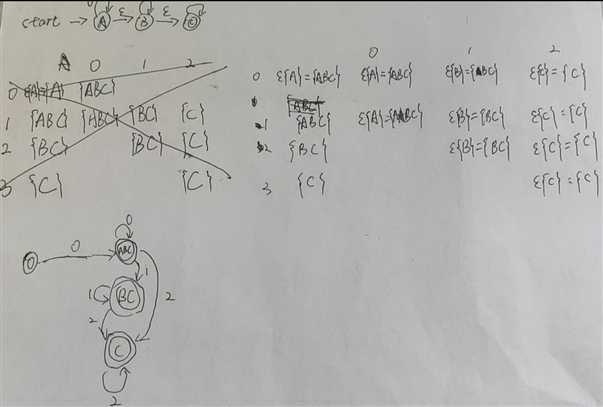 start → A ε B ε C
A 0 1 2
0 {A} {A} {ABC}
1 {ABC} {ABC} {BC} {C}
2 {BC} {BC} {C}
3 {C} {C}
0 1 2
0 ε{A}={ABC} ε{A}={ABC} ε{B}={BC} ε{C}={C}
{ABC}
1 {ABC} ε{A}={ABC} ε{B}={BC} ε{C}={C}
2 {BC} ε{B}={BC} ε{C}={C}
3 {C} ε{C}={C}
0
0 0 ABC
1
1 BC 2
2
C
2